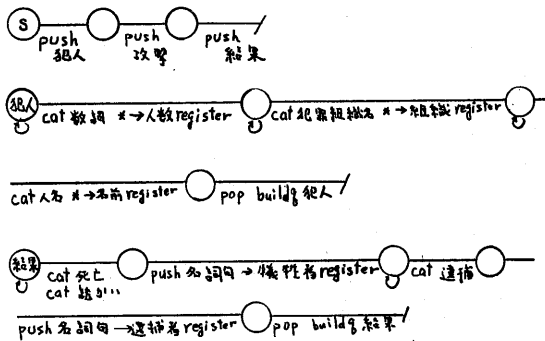 S
push 犯人 push 攻撃 push 結果
犯人 cat 数詞 *→人数register cat 犯罪組織名 *→組織register
cat 人名 *→名前register pop buildq 犯人
結果 cat 死亡 push 名詞句 →犠牲者register cat 逮捕
cat
push 名詞句 →逮捕者register pop buildq 結果